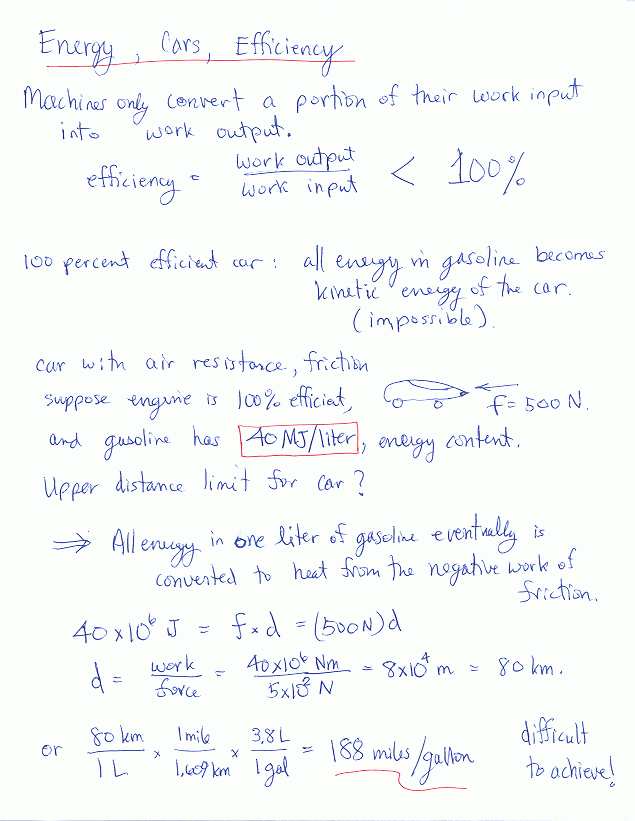 Energy, Cars, Efficiency
Machines only convert a portion of their work input
into work output.
efficiency = work output / work input < 100%
100 percent efficient car : all energy in gasoline becomes
kinetic energy of the car.
(impossible).
car with air resistance, friction
suppose engine is 100% efficient,
f = 500 N.
and gasoline has 40 MJ/liter, energy content.
Upper distance limit for car?
⇒ All energy in one liter of gasoline eventually is
converted to heat from the negative work of
friction.
40 x 10⁶ J = f x d = (500 N) d
d = work / force = 40 x 10⁶ Nm / 5 x 10² N = 8 x 10⁴ m = 80 km.
or 80 km / 1 L x 1 mile / 1,609 km x 3,8 L / 1 gal = 188 miles/gallon
difficult
to achieve!